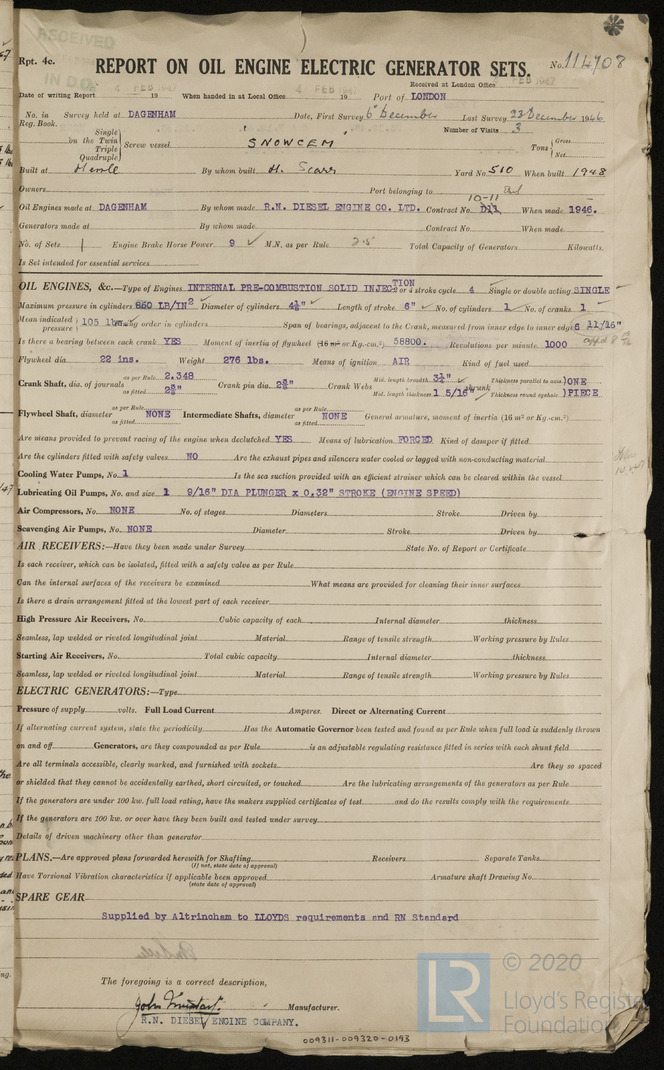 RECEIVED
IN D.O.
4 FEB 1947
4 FEB 1947
FEB 1947
Rpt. 4c.
REPORT ON OIL ENGINE ELECTRIC GENERATOR SETS.
No. 114708
Received at London Office
Date of writing Report 19 When handed in at Local Office 19 Port of LONDON
No. in Reg. Book. Survey held at DAGENHAM Date, First Survey 6th December Last Survey 23 December 1946
Number of Visits 3
on the Single Twin Triple Quadruple Screw vessel SNOWCEM Tons Gross Net
Built at Hessle By whom built H. Scarr Yard No. 510 When built 1948
Owners Port belonging to
Oil Engines made at DAGENHAM By whom made R.N. DIESEL ENGINE CO. LTD. Contract No. D11 10-11 When made 1946.
Generators made at By whom made Contract No. When made
No. of Sets 1 Engine Brake Horse Power 9 M.N. as per Rule 2.5 Total Capacity of Generators Kilowatts.
Is Set intended for essential services
OIL ENGINES, &c.—Type of Engines INTERNAL PRE-COMBUSTION SOLID INJECTION 2 or 4 stroke cycle 4 Single or double acting SINGLE
Maximum pressure in cylinders 850 LB/IN² Diameter of cylinders 4¼" Length of stroke 6" No. of cylinders 1 No. of cranks 1
Mean indicated pressure 105 lbs. Firing order in cylinders Span of bearings, adjacent to the Crank, measured from inner edge to inner edge 6 11/16"
Is there a bearing between each crank YES Moment of inertia of flywheel (16 m² or Kg.-cm.²) 58800. Revolutions per minute 1000
Flywheel dia. 22 ins. Weight 276 lbs. Means of ignition AIR Kind of fuel used
Crank Shaft, dia. of journals as per Rule 2.348 as fitted 2⅝" Crank pin dia. 2⅝" Crank Webs Mid. length breadth 3½" Mid. length thickness 1 5/16" shrunk Thickness parallel to axis )ONE Thickness round eyehole )PIECE
Flywheel Shaft, diameter as per Rule as fitted NONE Intermediate Shafts, diameter as per Rule as fitted NONE General armature, moment of inertia (16 m² or Kg.-cm.²)
Are means provided to prevent racing of the engine when declutched YES Means of lubrication FORCED Kind of damper if fitted
Are the cylinders fitted with safety valves NO Are the exhaust pipes and silencers water cooled or lagged with non-conducting material
Cooling Water Pumps, No. 1 Is the sea suction provided with an efficient strainer which can be cleared within the vessel
Lubricating Oil Pumps, No. and size 1 9/16" DIA PLUNGER x 0.32" STROKE (ENGINE SPEED)
Air Compressors, No. NONE No. of stages Diameters Stroke Driven by
Scavenging Air Pumps, No. NONE Diameter Stroke Driven by
AIR RECEIVERS:—Have they been made under Survey State No. of Report or Certificate
Is each receiver, which can be isolated, fitted with a safety valve as per Rule
Can the internal surfaces of the receivers be examined What means are provided for cleaning their inner surfaces
Is there a drain arrangement fitted at the lowest part of each receiver
High Pressure Air Receivers, No. Cubic capacity of each Internal diameter thickness
Seamless, lap welded or riveted longitudinal joint Material Range of tensile strength Working pressure by Rules
Starting Air Receivers, No. Total cubic capacity Internal diameter thickness
Seamless, lap welded or riveted longitudinal joint Material Range of tensile strength Working pressure by Rules
ELECTRIC GENERATORS:—Type
Pressure of supply volts. Full Load Current Amperes. Direct or Alternating Current
If alternating current system, state the periodicity Has the Automatic Governor been tested and found as per Rule when full load is suddenly thrown
on and off Generators, are they compounded as per Rule is an adjustable regulating resistance fitted in series with each shunt field
Are all terminals accessible, clearly marked, and furnished with sockets Are they so spaced
or shielded that they cannot be accidentally earthed, short circuited, or touched Are the lubricating arrangements of the generators as per Rule
If the generators are under 100 kw. full load rating, have the makers supplied certificates of test and do the results comply with the requirements
If the generators are 100 kw. or over have they been built and tested under survey
Details of driven machinery other than generator
PLANS.—Are approved plans forwarded herewith for Shafting Receivers Separate Tanks
(If not, state date of approval)
Have Torsional Vibration characteristics if applicable been approved Armature shaft Drawing No.
(state date of approval)
SPARE GEAR
Supplied by Altrincham to LLOYDS requirements and RN Standard
The foregoing is a correct description,
Manufacturer.
R.N. DIESEL ENGINE COMPANY.
009311-009320-0193
LR
© 2020
Lloyd's Register
Foundation